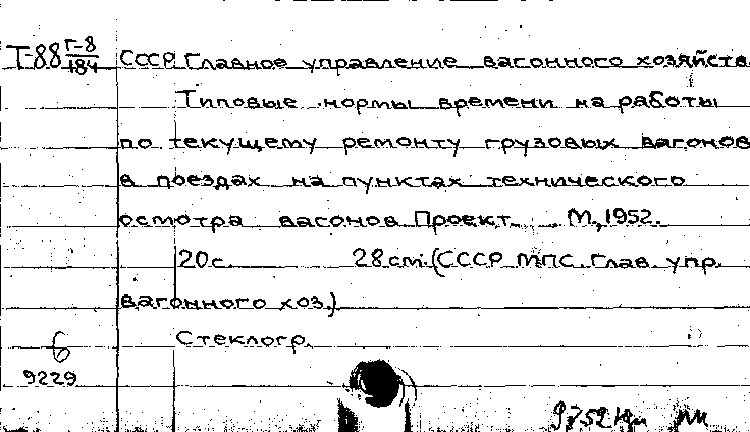 Т-88 Г-8/184
СССР Главное управление вагонного хозяйств
Типовые нормы времени на работы
по текущему ремонту грузовых вагонов
в поездах на пунктах технического
осмотра вагонов Проект. М., 1952.
20с. 28 см. (СССР МПС. Глав. упр.
вагонного хоз.)
Стеклогр.
6
9229